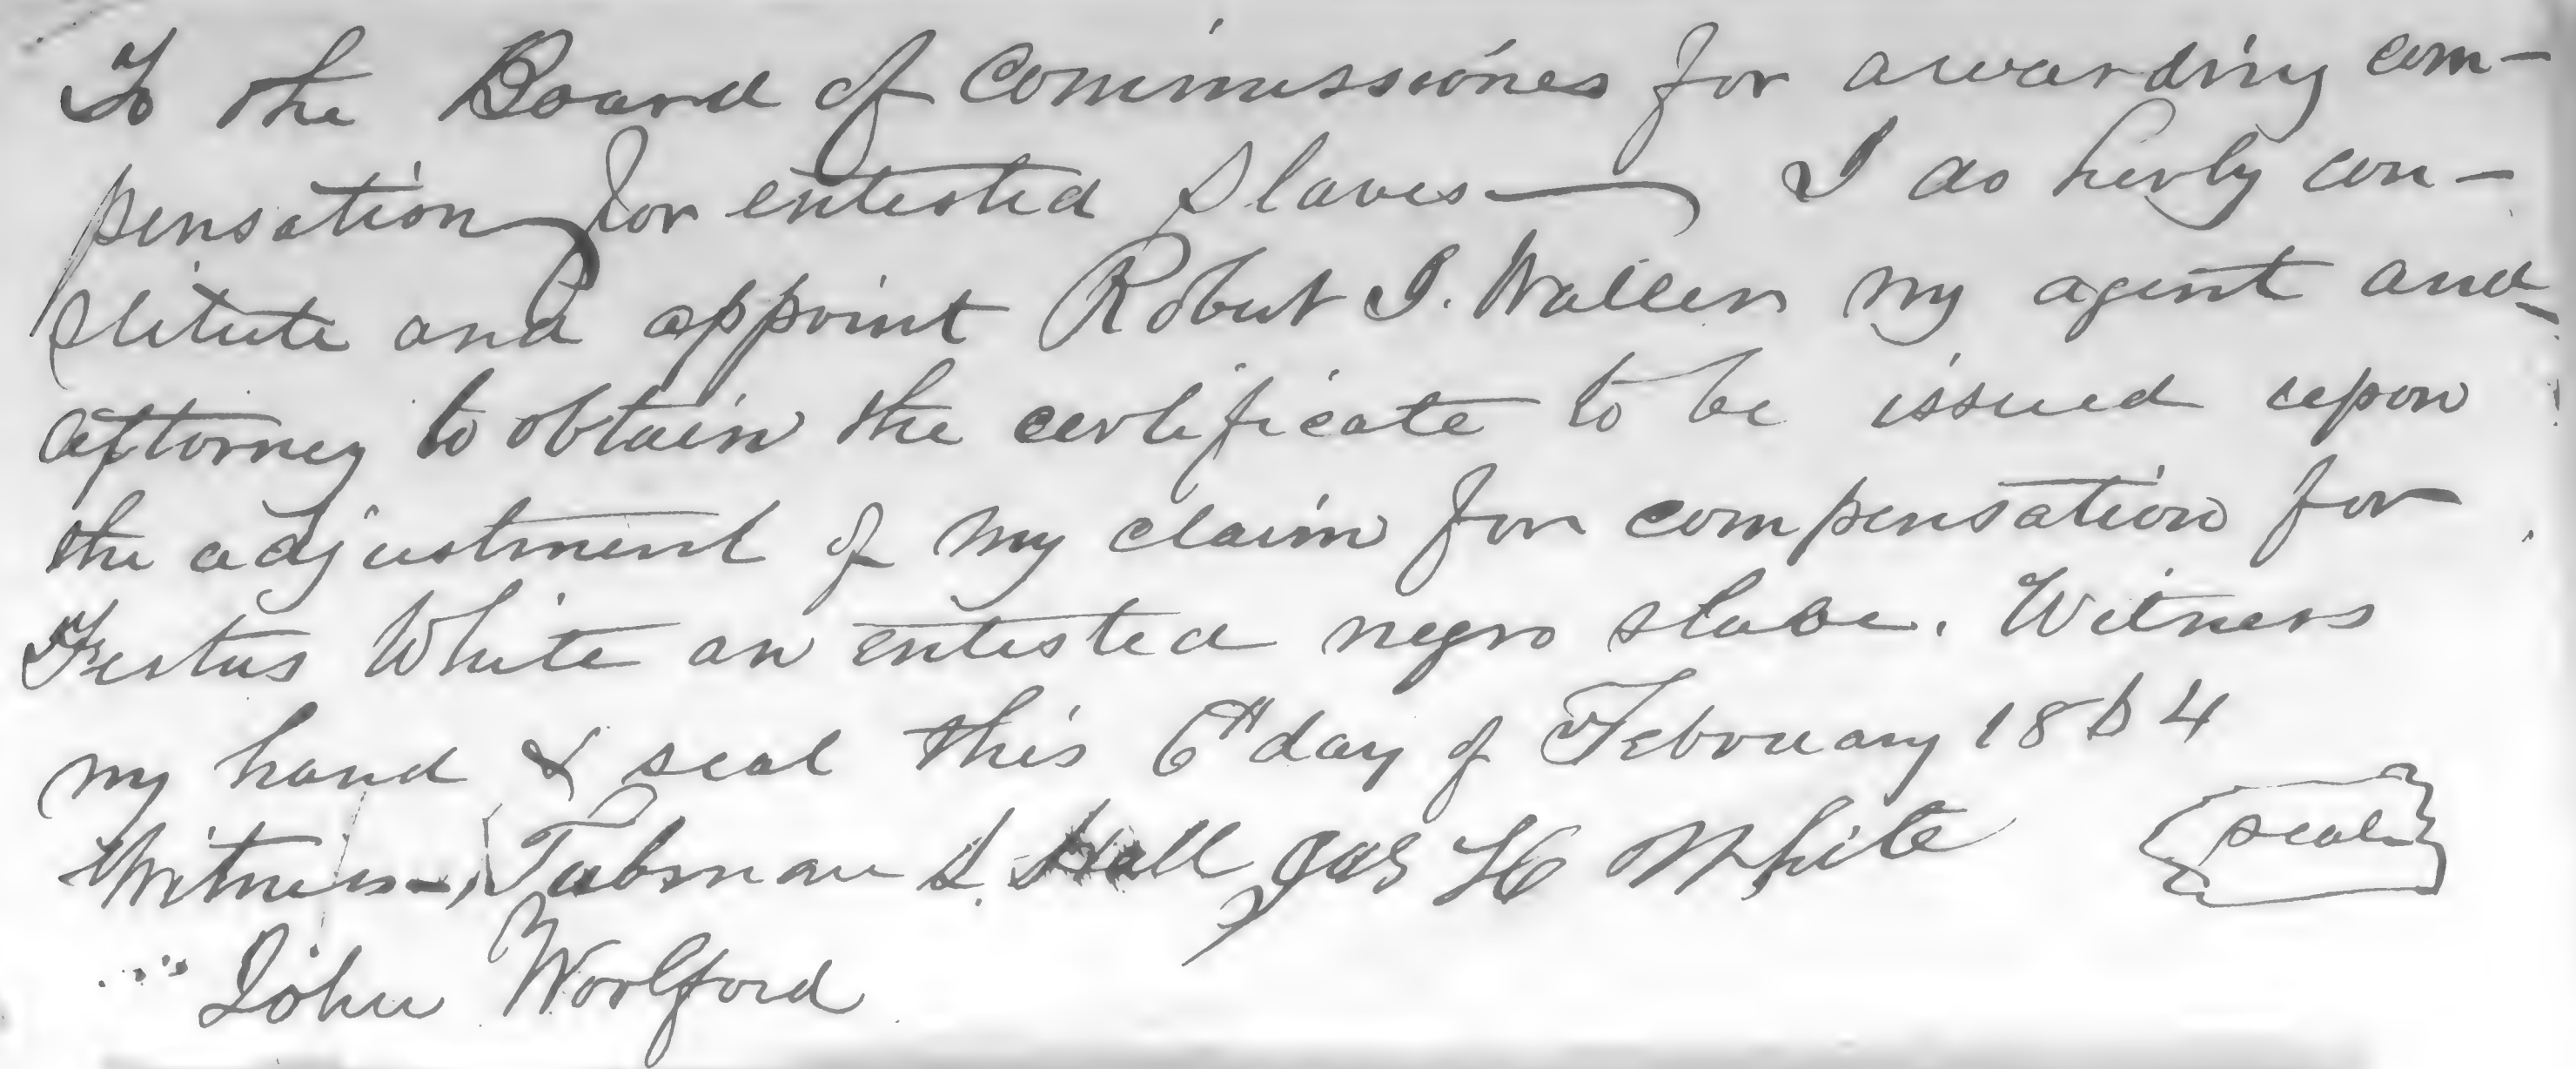 To the Board of Commissiones for awarding com-
pensation for entested slaves — I do herby con-
stitute and appoint Robert I. Waller my agent and
attorney to obtain the certificate to be issued upon
the adjustment of my claim for compensation for
Festus White an entested negro slave. Witness
my hand & seal this 6th day of February 1864
Witness, Tubman L. Hall Jas H White seal
" John Woolford